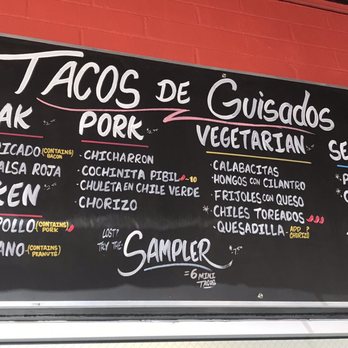 TACOS DE GUISADOS
AK
ICADO (CONTAINS) BACON
ALSA ROJA
KEN
POLLO (CONTAINS) PORK
ANO (CONTAINS) PEANUTS
PORK
- CHICHARRON
- COCHINITA PIBIL
- CHULETA EN CHILE VERDE
- CHORIZO
LOST?
TRY THE
SAMPLER
= 6 MINI
TACOS
VEGETARIAN
- CALABACITAS
- HONGOS CON CILANTRO
- FRIJOLES CON QUESO
- CHILES TOREADOS
- QUESADILLA ADD CHORIZO ?
SE